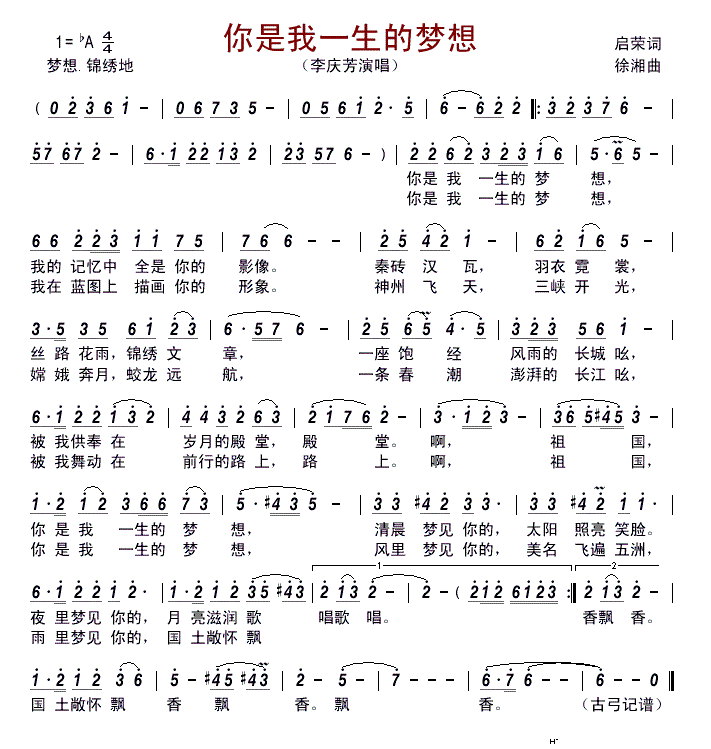 你是我一生的梦想
1=♭A 4/4
启荣词
梦想.锦绣地
（李庆芳演唱）
徐湘曲
( 0 2 3 6 1 - | 0 6 7 3 5 - | 0 5 1 0 1 2 · 5 | 6 - 6 2 2 ‖: 3 2 3 7 6 - |
5 7 6 7 2 - | 6 · 1 2 2 1 3 2 | 2 3 5 7 6 - ) | 2 2 6 2 3 2 3 1 6 | 5 · 6 5 - |
你是 我 一生的 梦 想，
你是 我 一生的 梦 想，
6 6 2 2 3 1 1 7 5 | 7 6 6 - - | 2 5 4 2 1 - | 6 2 1 6 5 - |
我的 记忆中 全是 你的 影像。 秦砖 汉 瓦， 羽衣 霓 裳，
我在 蓝图上 描画 你的 形象。 神州 飞 天， 三峡 开 光，
3 · 5 3 5 6 1 2 3 | 6 · 5 7 6 - | 2 5 6 5 4 · 5 | 3 2 3 5 6 1 - |
丝 路 花雨，锦绣 文 章， 一座 饱 经 风雨的 长城 吆，
嫦 娥 奔月，蛟龙 远 航， 一条 春 潮 澎湃的 长江 吆，
6 · 1 2 2 1 3 2 | 4 4 3 2 6 3 | 2 1 7 6 2 - | 3 · 1 2 3 - | 3 6 5 #4 5 3 - |
被 我供奉 在 岁月的 殿 堂，殿 堂。 啊， 祖 国，
被 我舞动 在 前行的 路 上，路 上。 啊， 祖 国，
1 · 2 1 2 3 6 6 7 3 | 5 · #4 3 5 - | 3 3 1 2 1 6 | 3 3 #4 2 1 1 · |
你 是 我 一生的 梦 想， 清晨 梦见 你的， 太阳 照亮 笑脸。
你 是 我 一生的 梦 想， 风里 梦见 你的， 美名 飞遍 五洲，
1
2
6 · 1 2 2 1 2 2 · | 1 · 2 1 2 3 5 #4 3 | 2 1 3 2 - | 2 - ( 2 1 2 6 1 2 3 :‖ 2 1 3 2 - |
夜 里梦见 你的， 月 亮滋润 歌 唱歌 唱。 香飘 香。
雨 里梦见 你的， 国 土敞怀 飘
1 · 2 1 2 3 6 | 5 - #4 5 #4 3 | 2 - · 2 | 5 - - - | 7 - - - | 6 · 7 6 - | 6 - - 0 ‖
国 土敞怀 飘 香 飘 香。飘 香。 （古弓记谱）